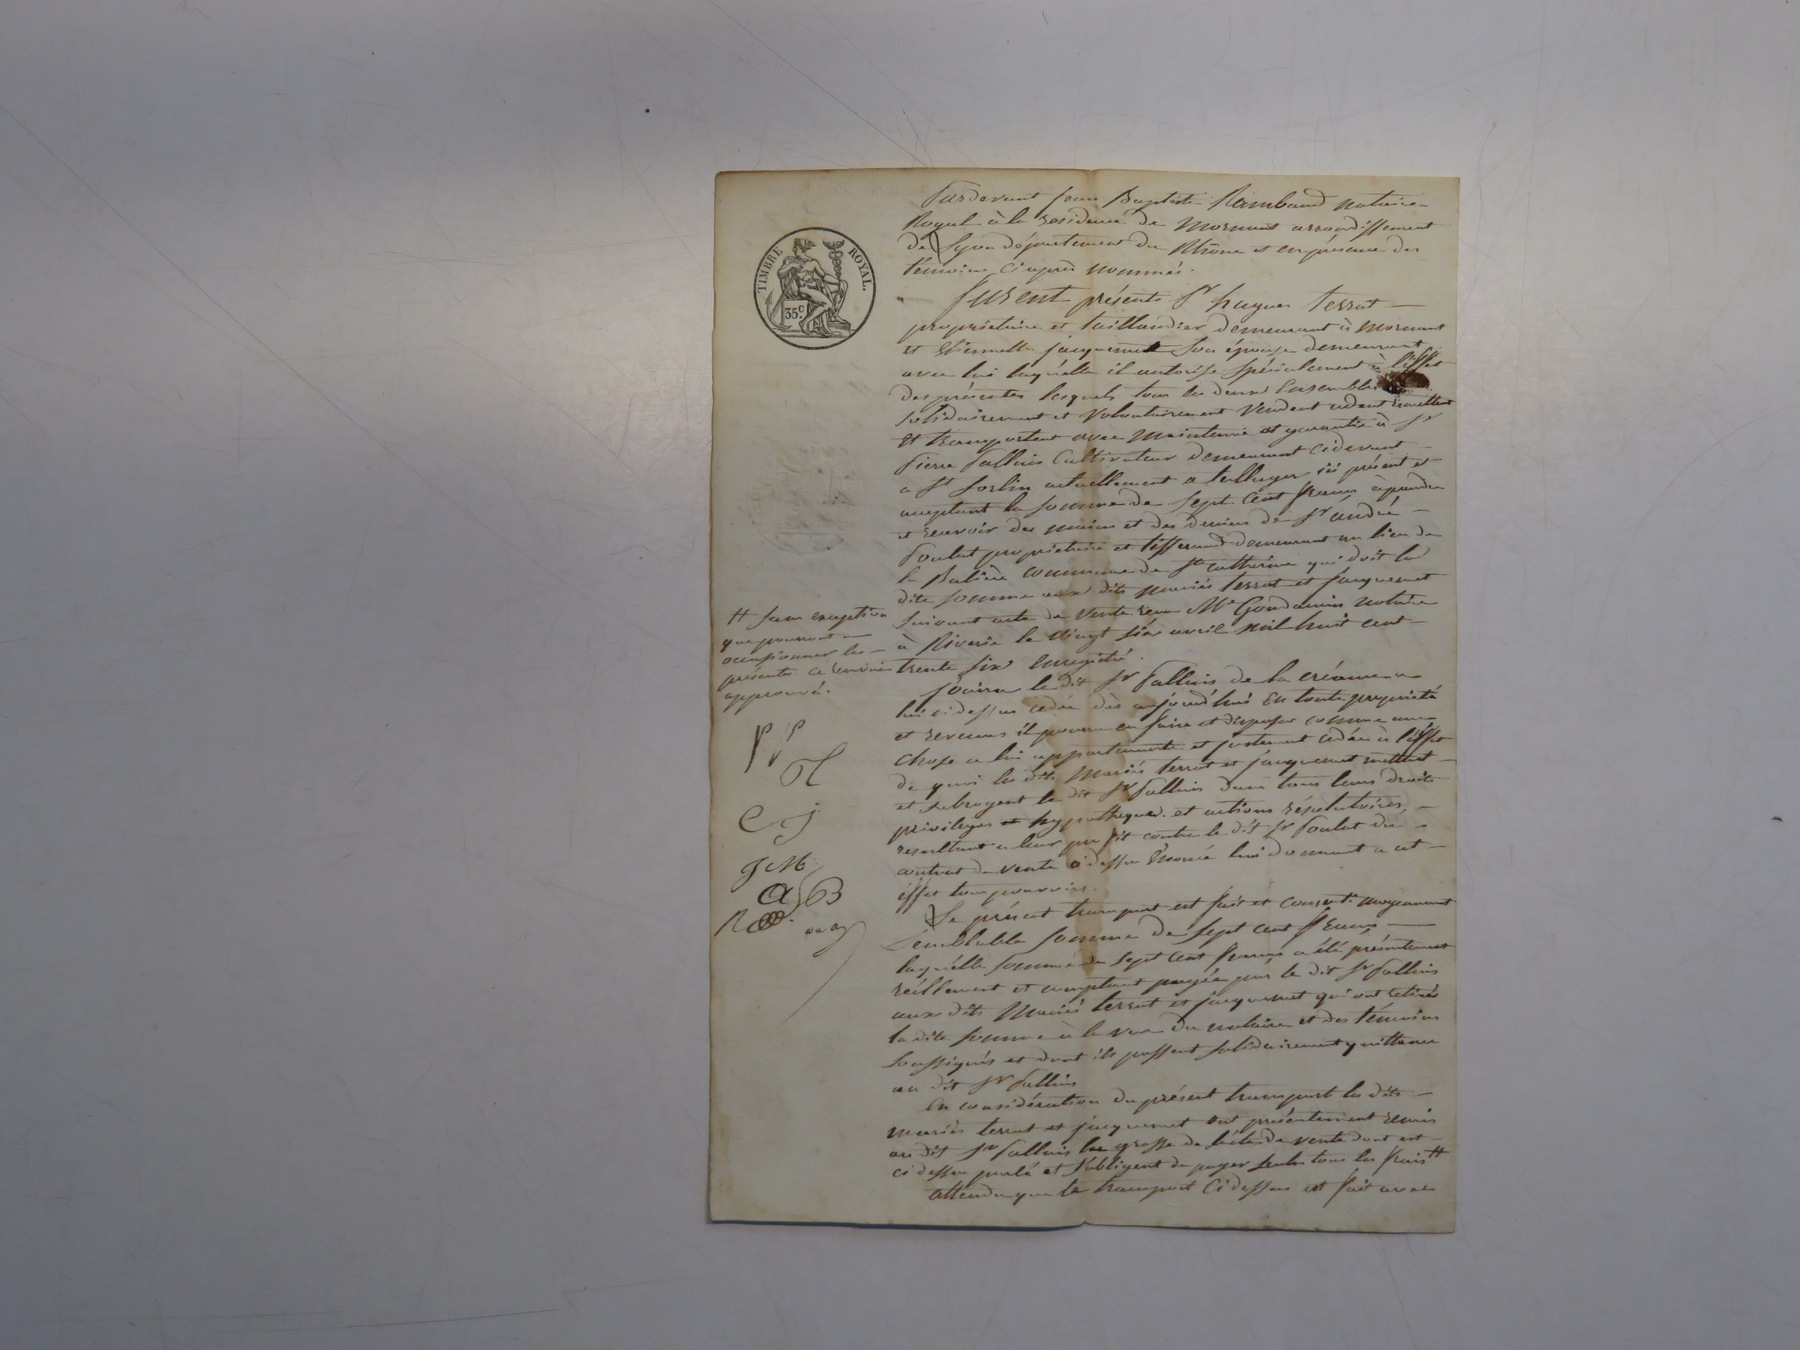 TIMBRE ROYAL.
35c.
Pardevant Jean Baptiste Rambaud notaire
Royal à la residence de Mornant arrondissement
de Lyon département du Rhône et en présence des
témoins ci après nommés.
Furent présents Sr hugues terrat
propriétaire et taillandier demeurant à Mornant
et Etiennette jacquemet son épouse demeurant
avec lui laquelle il autorise spécialement à l'effet
des présentes lesquels tous les deux Ensemble
solidairement et volontairement vendent cédent remettent
Et transportent avec Maintenue et garantie à Sr
Pierre Cultivateur demeurant cidevant
a St Sorlin actuellement a ici présent et
acceptant la somme de sept cent francs à prendre
et recevoir des mains et des deniers de Sr andré
propriétaire et tisserand demeurant au lieu de
la commune de Ste catherine qui doit la
dite somme aux dits mariés terrat et jacquemet
suivant acte de vente reçu Me notaire
à Riverie le vingt six avril mil huit cent
trente six Enregistré.
Jouira le dit Sr de la créance a
lui cidessus cédée dès aujourd'hui En toute propriété
et revenus il pourra en faire et disposer comme une
chose a lui appartenante et justement cédée à l'effet
de quoi les dits Mariés terrat et jacquemet mettent
et subrogent le dit Sr dans tous leurs droits
privileges et hypotheques et actions résolutoires
resultant a leur profit contre le dit Sr du
contrat de vente cidessus Enoncé lui donnant a cet
éffet tous pouvoirs.
Le présent transport est fait et consenti moyennant
semblable somme de sept cent francs
laquelle somme de sept cent francs a été présentement
réellement et comptant payée par le dit Sr
aux dits Mariés terrat et jacquemet qui ont retirés
la dite somme à la vue du notaire et des témoins
soussignés et dont ils passent solidairement quittance
au dit Sr
En considération du présent transport les dits
mariés terrat et jacquemet ont présentement remis
au dit Sr la grosse de l'acte de vente dont est
ci dessus parlé et s'obligent de payer seuls tous les frais #
attendu que le transport ci dessus est fait avec
# sans exception
que pourront
occasionner les
présentes ce renvoi
approuvé.